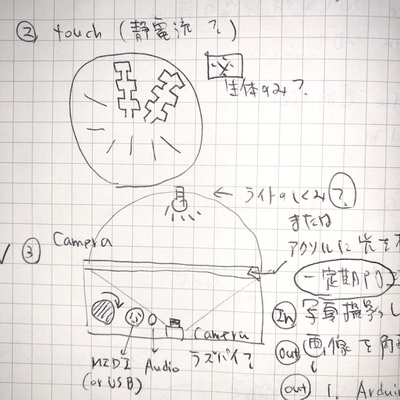 ② touch (静電流?)
生体のみ?
← ライトのしくみ?
または
③ Camera
アクリルに光を
一定期的
In 写真撮影し
Camera
ラズパイ?
Out 画像を
MIDI
(or USB)
Audio
Out 1. Ardui